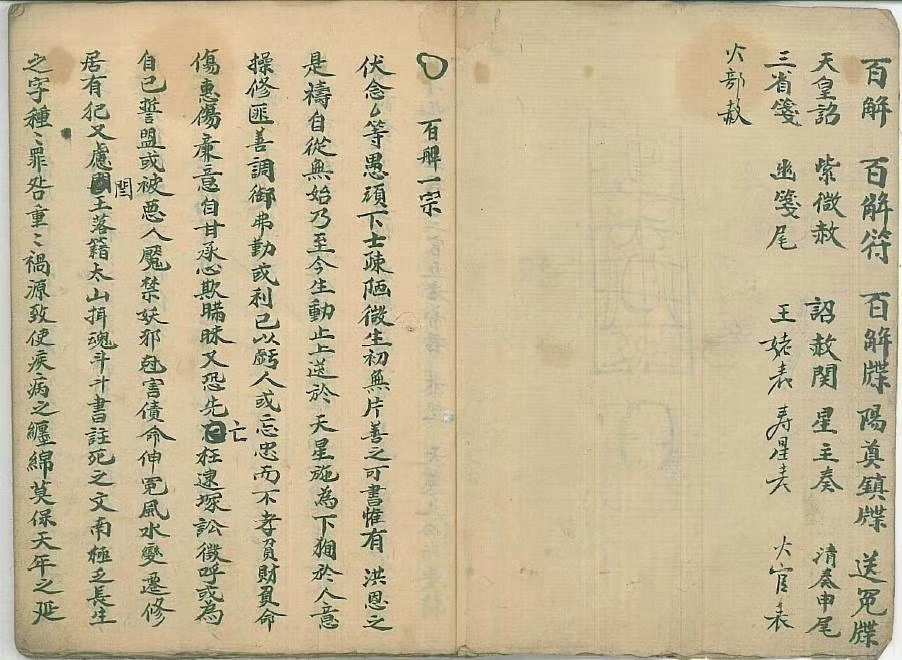 百解 百解符 百解牒 陽奠鎮牒 送冤牒
天皇詔 紫微赦 詔赦関 星主奏 清奏申尾
三省箋 幽箋尾 王姥表 寿星表 火官表
火部赦
百解一宗
伏念厶等愚頑下士疎陋微生初無片善之可書惟有 洪恩之
是禱自從無始乃至今生動止上送於 天星施為下狥於人意
操修匪善調御弗勤或利己以虧人或忘忠而不孝貪財負命
傷惠傷廉意自甘承心欺瞞昧又恐先亡枉逮塚訟徵呼或為
自己誓盟或被惡人魘禁妖邪尅害債命伸冤風水變遷修
居有犯又慮閏王落籍太山揖魂斗斗書註死之文南極乏長生
之字種〻罪咎重〻禍源致使疾病之纏綿莫保天年之延